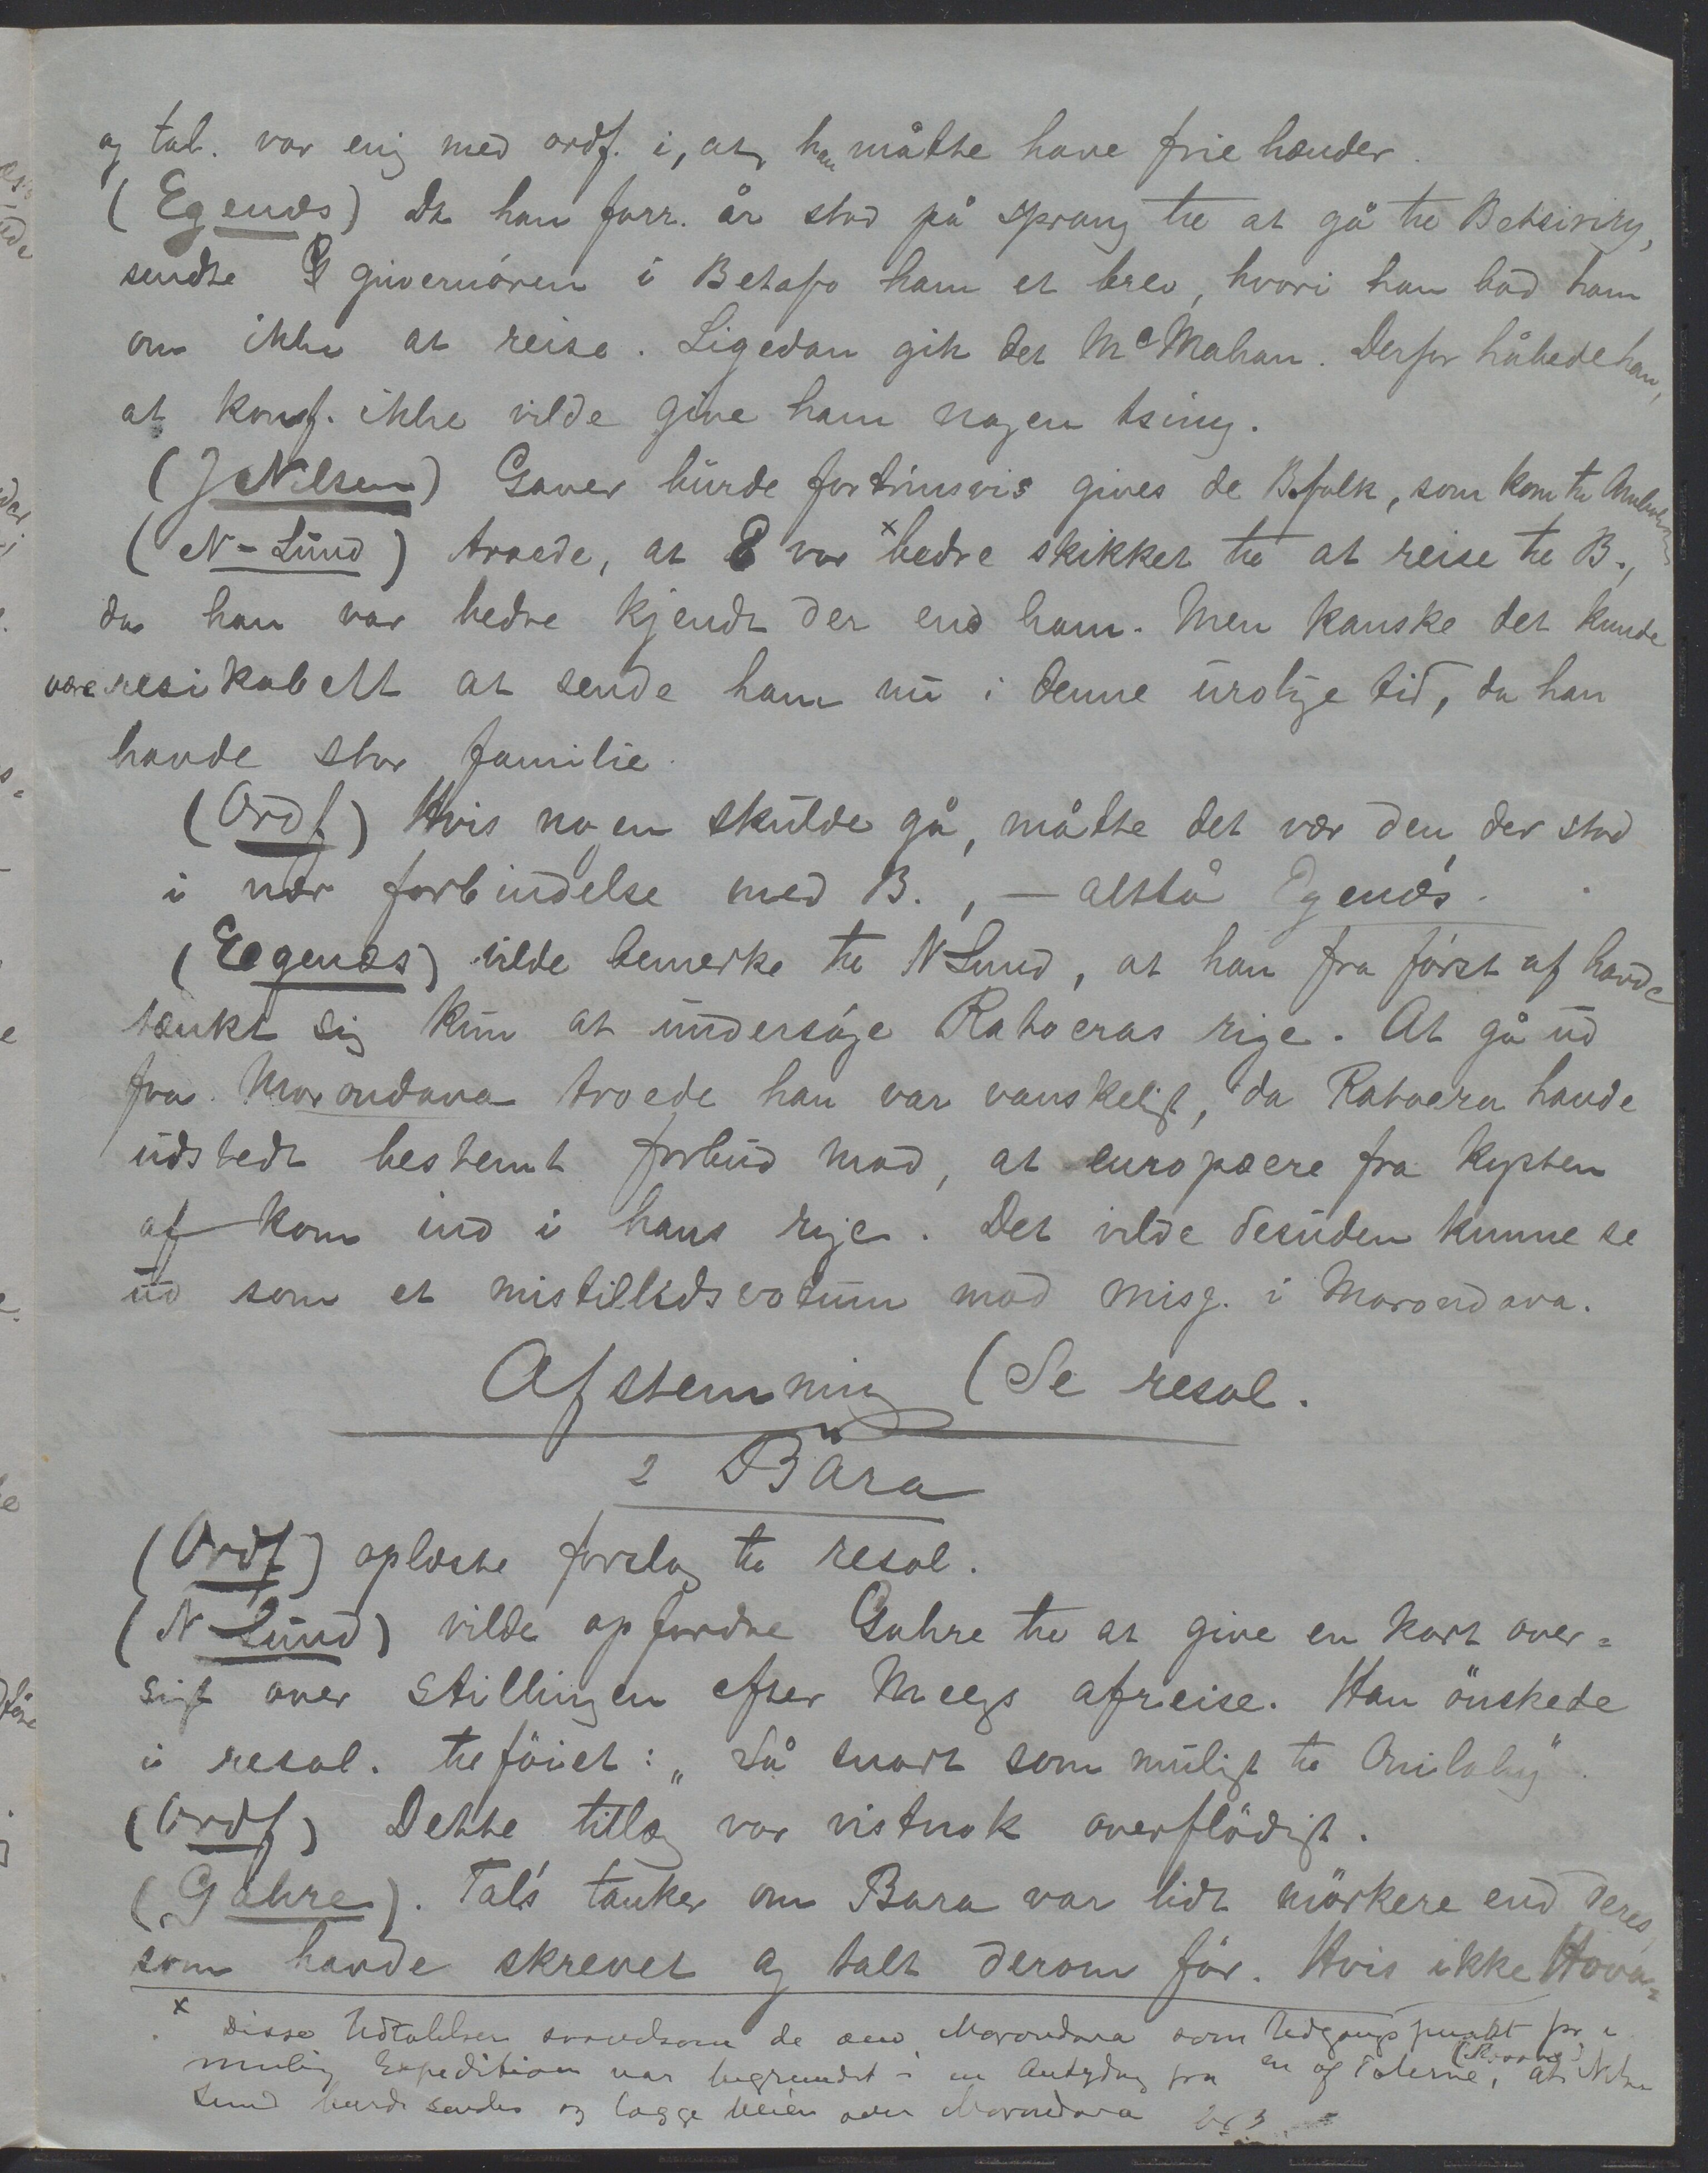 og tal. var enig med ordf. i, at han måtte have frie hænder.
(Egenæs) Da han forr. år stod på sprang til at gå til Betsiriry,
sendte guvernören i Betafo ham et brev, hvori han bad ham
om ikke at reise. Ligedan gik det McMahan. Derfor håbede han,
at konf. ikke vilde give ham nogen tsiny.
(J Nilsen) Gaver burde fortrinsvis gives de B.folk, som kom til
(N-Lund) troede, at E var x bedre skikket til at reise til B.,
da han var bedre kjendt der end ham. Men kanske det kunde
være resikabelt at sende ham nu i denne urolige tid, da han
havde stor familie.
(Ordf) Hvis nogen skulde gå, måtte det vær den der stod
i nær forbindelse med B., — altså Egenæs.
(Egenæs) vilde bemerke til N Lund, at han fra först af havde
tænkt sig kun at undersöge Ratoeras rige. At gå ud
fra Morondava troede han var vanskeligt, da Ratoera havde
udstedt bestemt forbud mod, at europæere fra kysten
af kom ind i hans rige. Det vilde desuden kunne se
ud som et mistillidsvotum mod misj. i Morondava.
Afstemning (Se resol.
2 Bara
(Ordf) oplæste forslag til resol.
(N-Lund) vilde opfordre Gahre til at give en kort over=
sigt over stillingen efter Meegs afreise. Han önskede
i resol. tilföiet: „Så snart som muligt til Onilahy".
(Ordf) Dette tillæg var vistnok overflödigt.
(Gahre). Tal's tanker om Bara var lidt mörkere end deres,
som havde skrevet og talt derom för. Hvis ikke Hova=
x Disse Udtalelser saavelsom de om Morondava som Udgangspunkt for en
mulig Expedition var begrundet i en Antydning fra en af Talerne, at Niels
Lund burde sendes og lægge Veien over Morondava